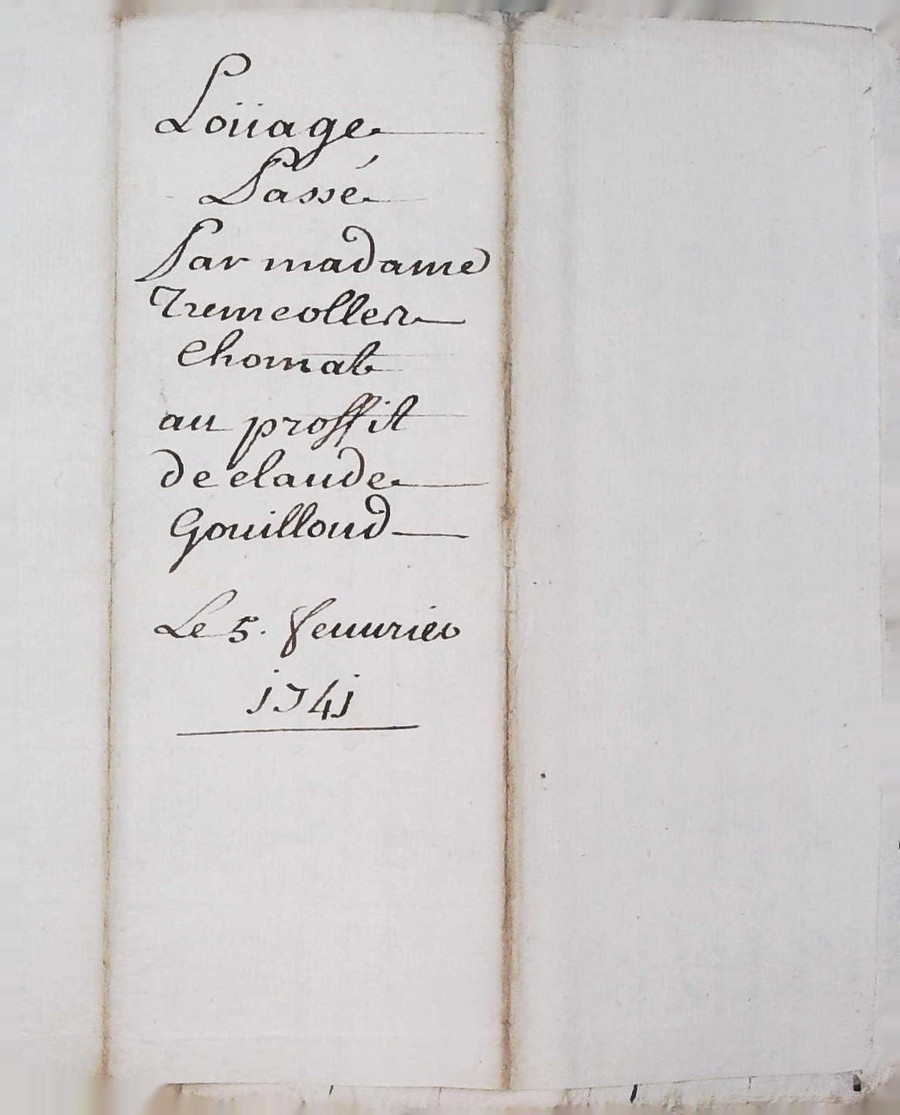 Loüage
Passé
Par madame
Tremeolles
Chomat
au proffit
de claude
Gouilloud
Le 5. feuurier
1741